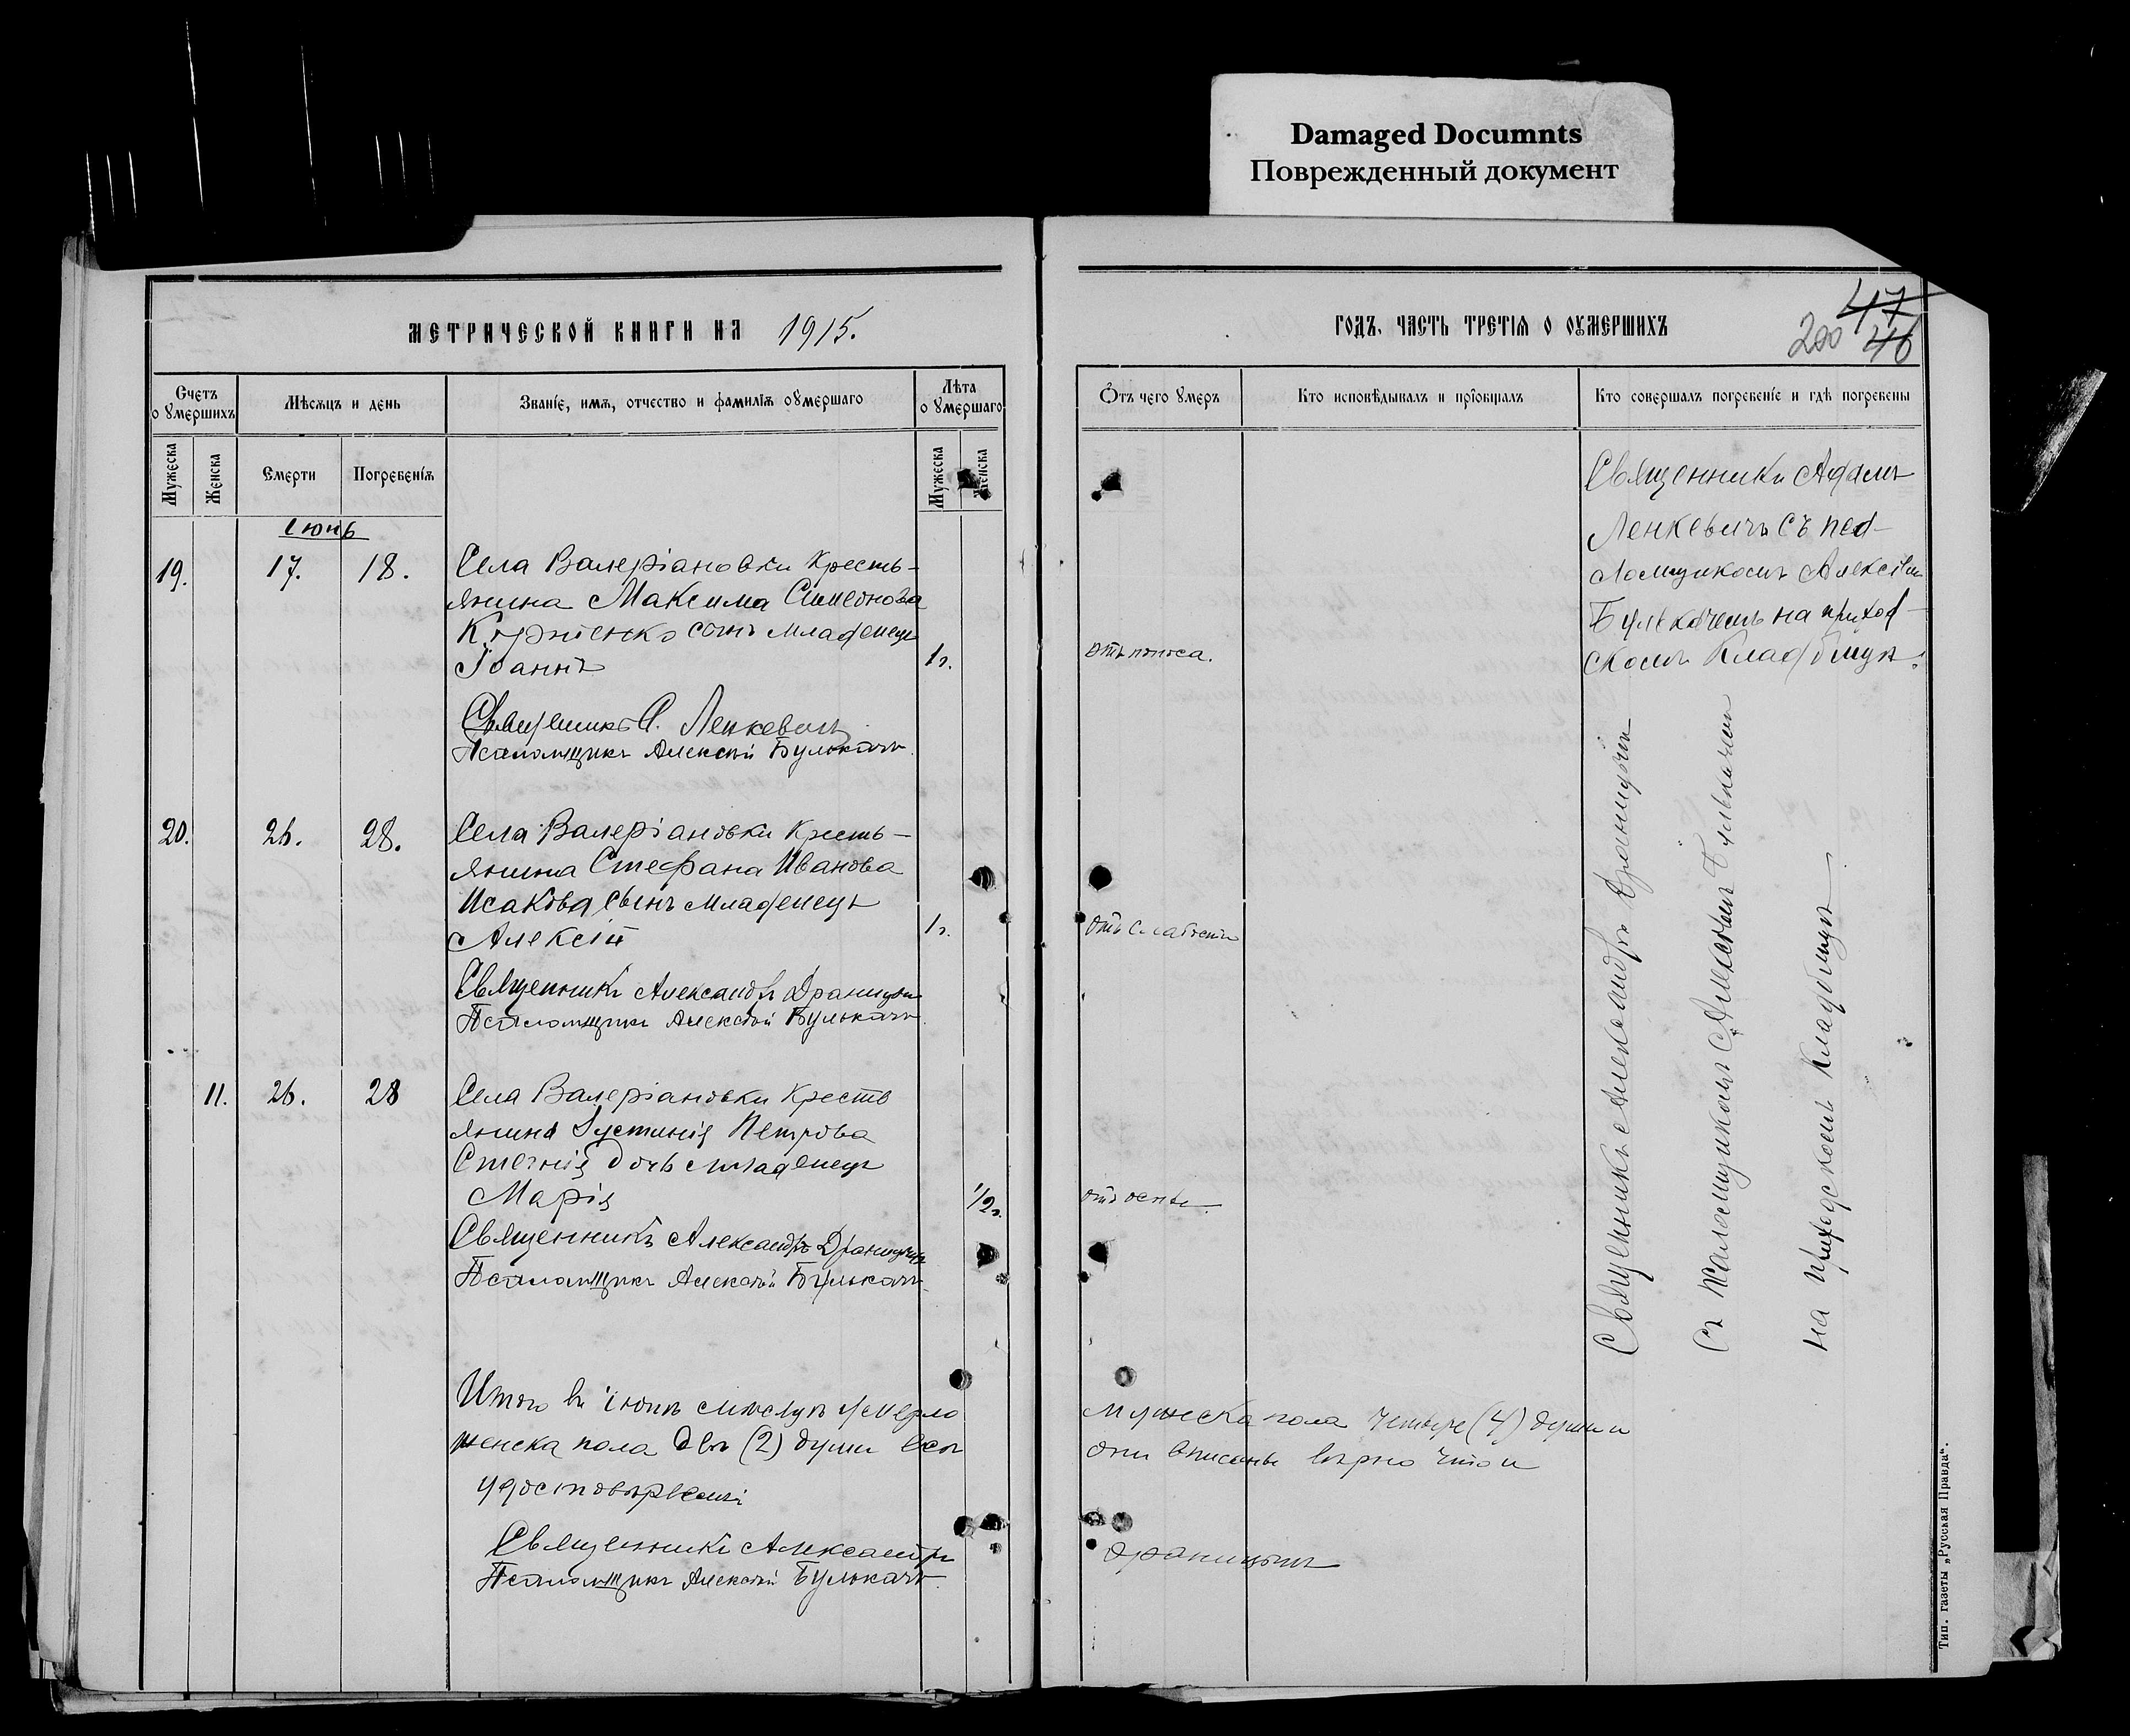 Damaged Documnts
Поврежденный документ
МЕТРИЧЕСКОЙ КНИГИ НА 1915.
ГОДЪ, ЧАСТЬ ТРЕТІЯ О ОУМЕРШИХЪ
47
200 46
Счетъ о умершихъ
Мѣсяцъ и день
Званіе, имя, отчество и фамилія оумершаго
Лѣта о умершаго
Отъ чего умеръ
Кто исповѣдывалъ и пріобщалъ
Кто совершалъ погребеніе и гдѣ погребены
Мужеска
Женска
Смерти
Погребенія
Мужеска
Женска
Іюнь
19.
17.
18.
Села Валеріановки кресть-
янина Максима Симеонова
сынъ младенецъ
Іоаннъ
1 г.
отъ поноса.
Священникъ Адамъ
Ленкевичъ съ пса-
ломщикомъ Алексіем
Булькачемъ на приход-
скомъ кладбищѣ.
Священникъ А. Ленкевичъ
Псаломщикъ Алексѣй Булькачъ
20.
26.
28.
Села Валеріановки кресть-
янина Стефана Иванова
Исакова сынъ младенецъ
Алексій
1 г.
отъ слабости
Священникъ Александръ Драницынъ
Псаломщикъ Алексѣй Булькачъ
11.
26.
28
Села Валеріановки кресть
янина Іустинія Петрова
дочь младенецъ
Марія
1/2 г.
отъ оспы.
Священникъ Александръ Драницынъ
Псаломщикъ Алексѣй Булькачъ
Священникъ Александръ Драницынъ
съ псаломщикомъ Алексѣемъ Булькачемъ
на приходскомъ кладбищѣ
Итого въ іюнѣ мѣсяцѣ умерло
мужеска пола четыре (4) души и
женска пола двѣ (2) души всѣ
они вписаны вѣрно что и
удостовѣряемъ
Священникъ Александръ
Драницынъ
Псаломщикъ Алексѣй Булькачъ
Тип. газеты „Русская Правда“.